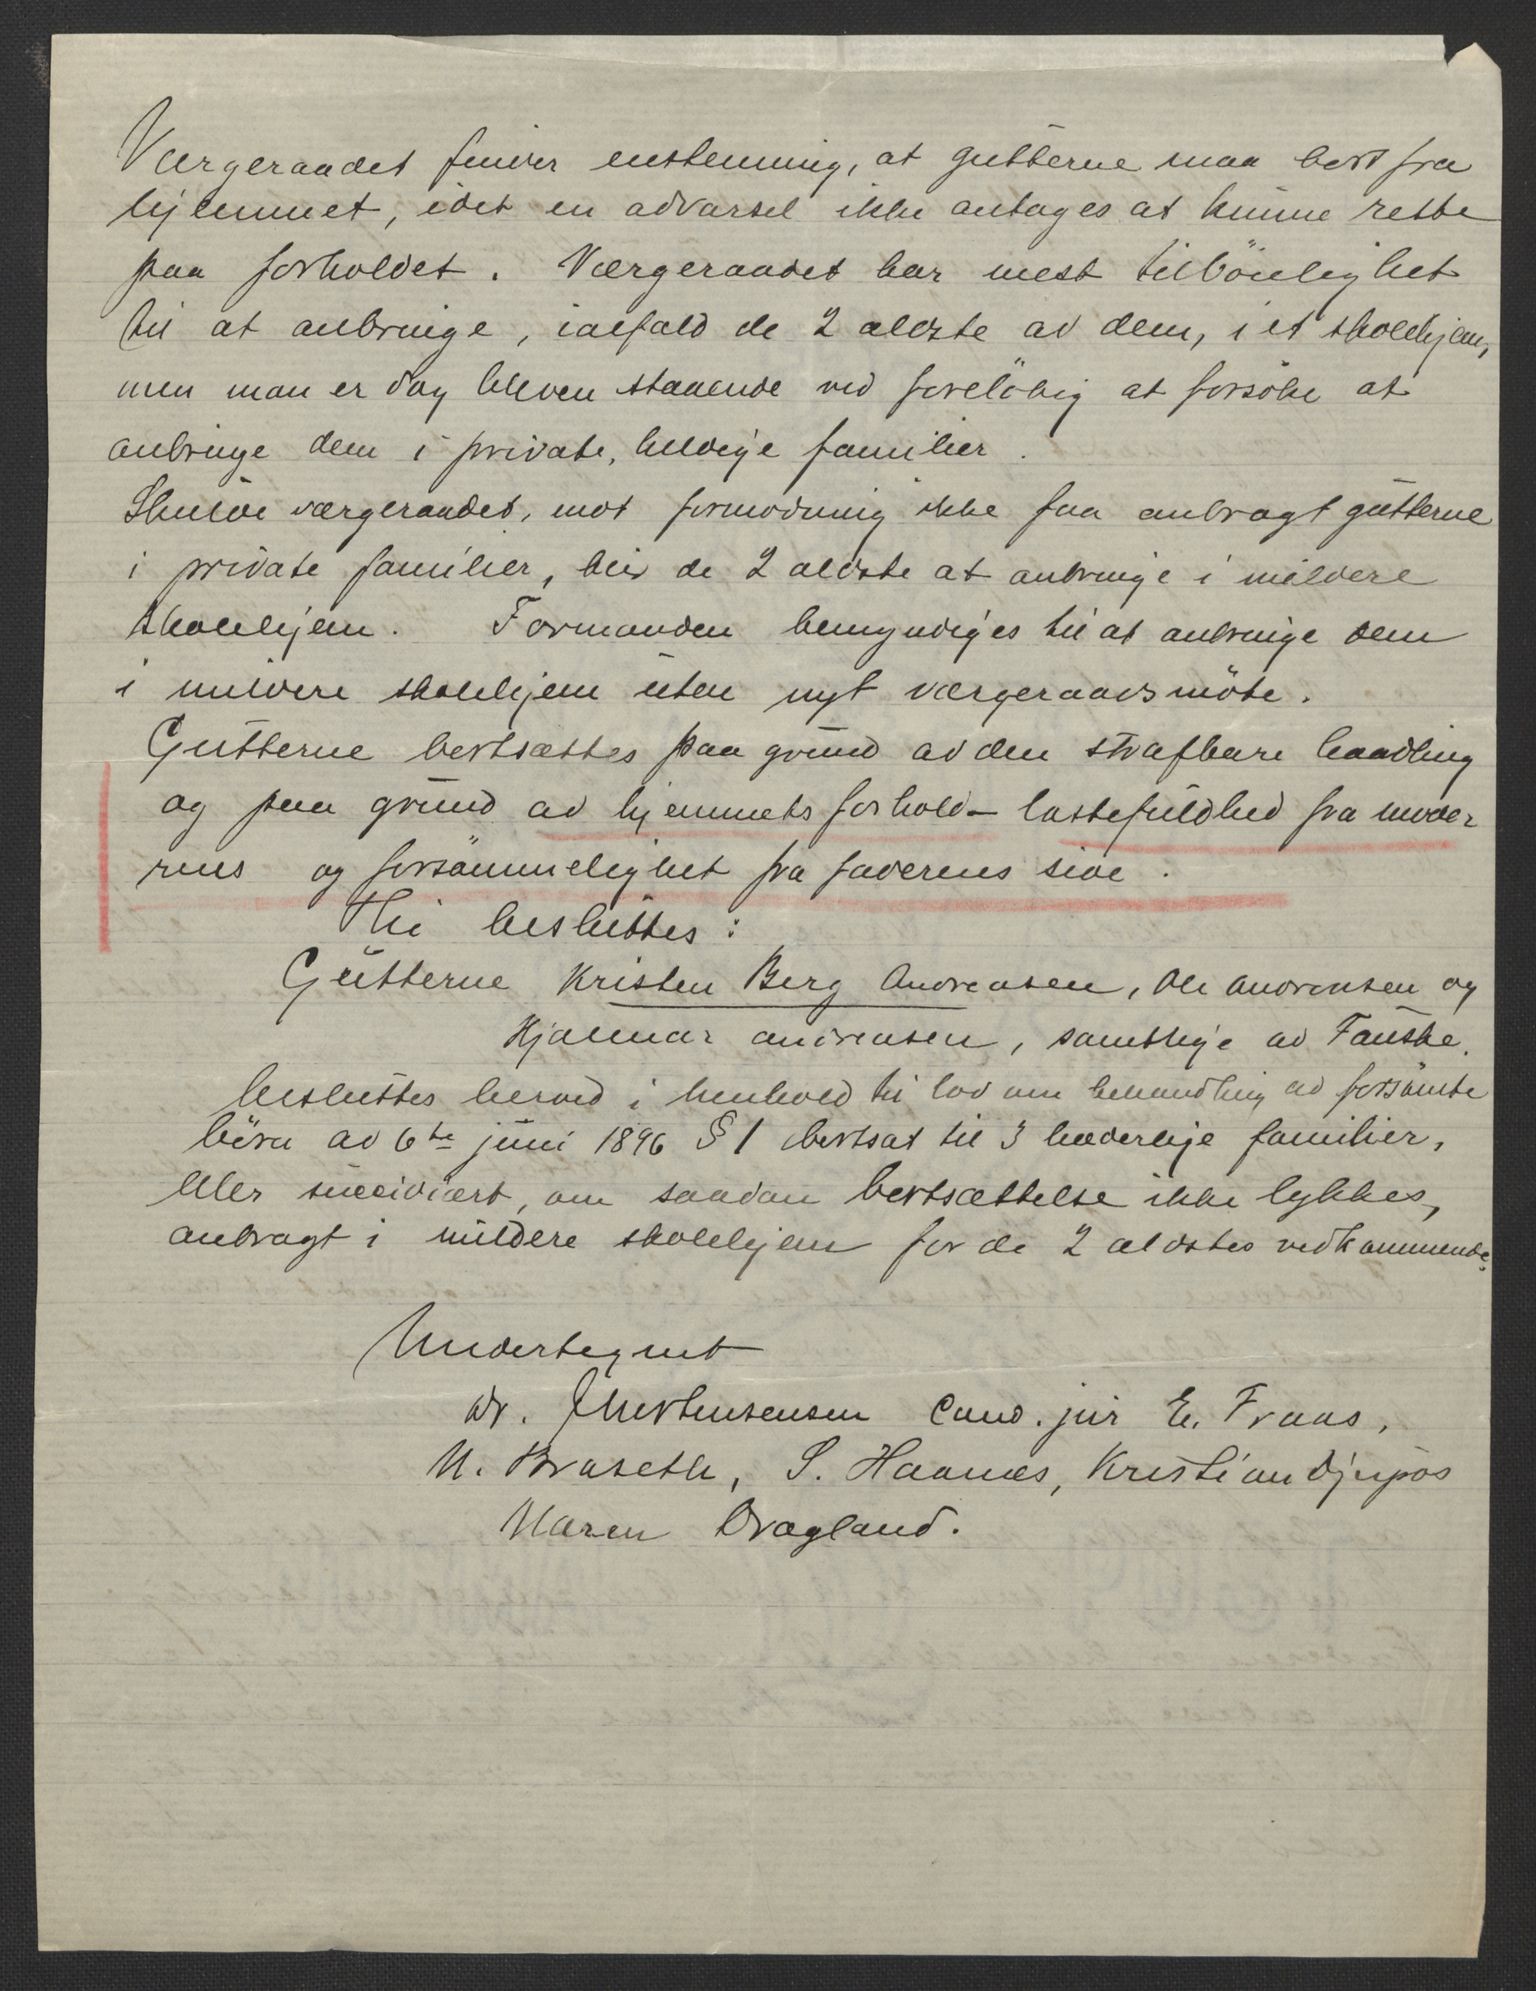 Værgeraadet finder enstemmig, at gutterne maa bort fra
hjemmet, idet en advarsel ikke antages at kunne rette
paa forholdet. Værgeraadet har mest tilböielighet
til at anbringe, ialfald de 2 ældste av dem, i et skolehjem,
men man er dog bleven staaende ved foreløbig at forsöke at
anbringe dem i private, heldige familier.
Skulde værgeraadet, mot formodning ikke faa anbragt gutterne
i private familier, blir de 2 ældste at anbringe i mildere
skolehjem. Formanden bemyndiges til at anbringe dem
i mildere skolehjem uten nyt værgeraadsmöte.
Gutterne bortsættes paa grund av den strafbare handling
og paa grund av hjemmets forhold – lastefuldhed fra moder
rens og forsömmelighet fra faderens side.
Thi besluttes:
Gutterne Kristen Berg Andreasen, Ole Andreasen og
Hjalmar Andreasen, samtlige av Fauske.
besluttes herved i henhold til lov om behandling av forsömte
börn av 6te juni 1896 § 1 bortsat til 3 hæderlige familier,
eller subsidiært, om saadan bortsættelse ikke lykkes,
anbragt i mildere skolehjem for de 2 ældstes vedkommende.
Undertegnet
Dr. Mortensensen Cand. jur E. Traas,
N. Braseth, S. Haanes, Kristian Djupos
Maren Dragland.